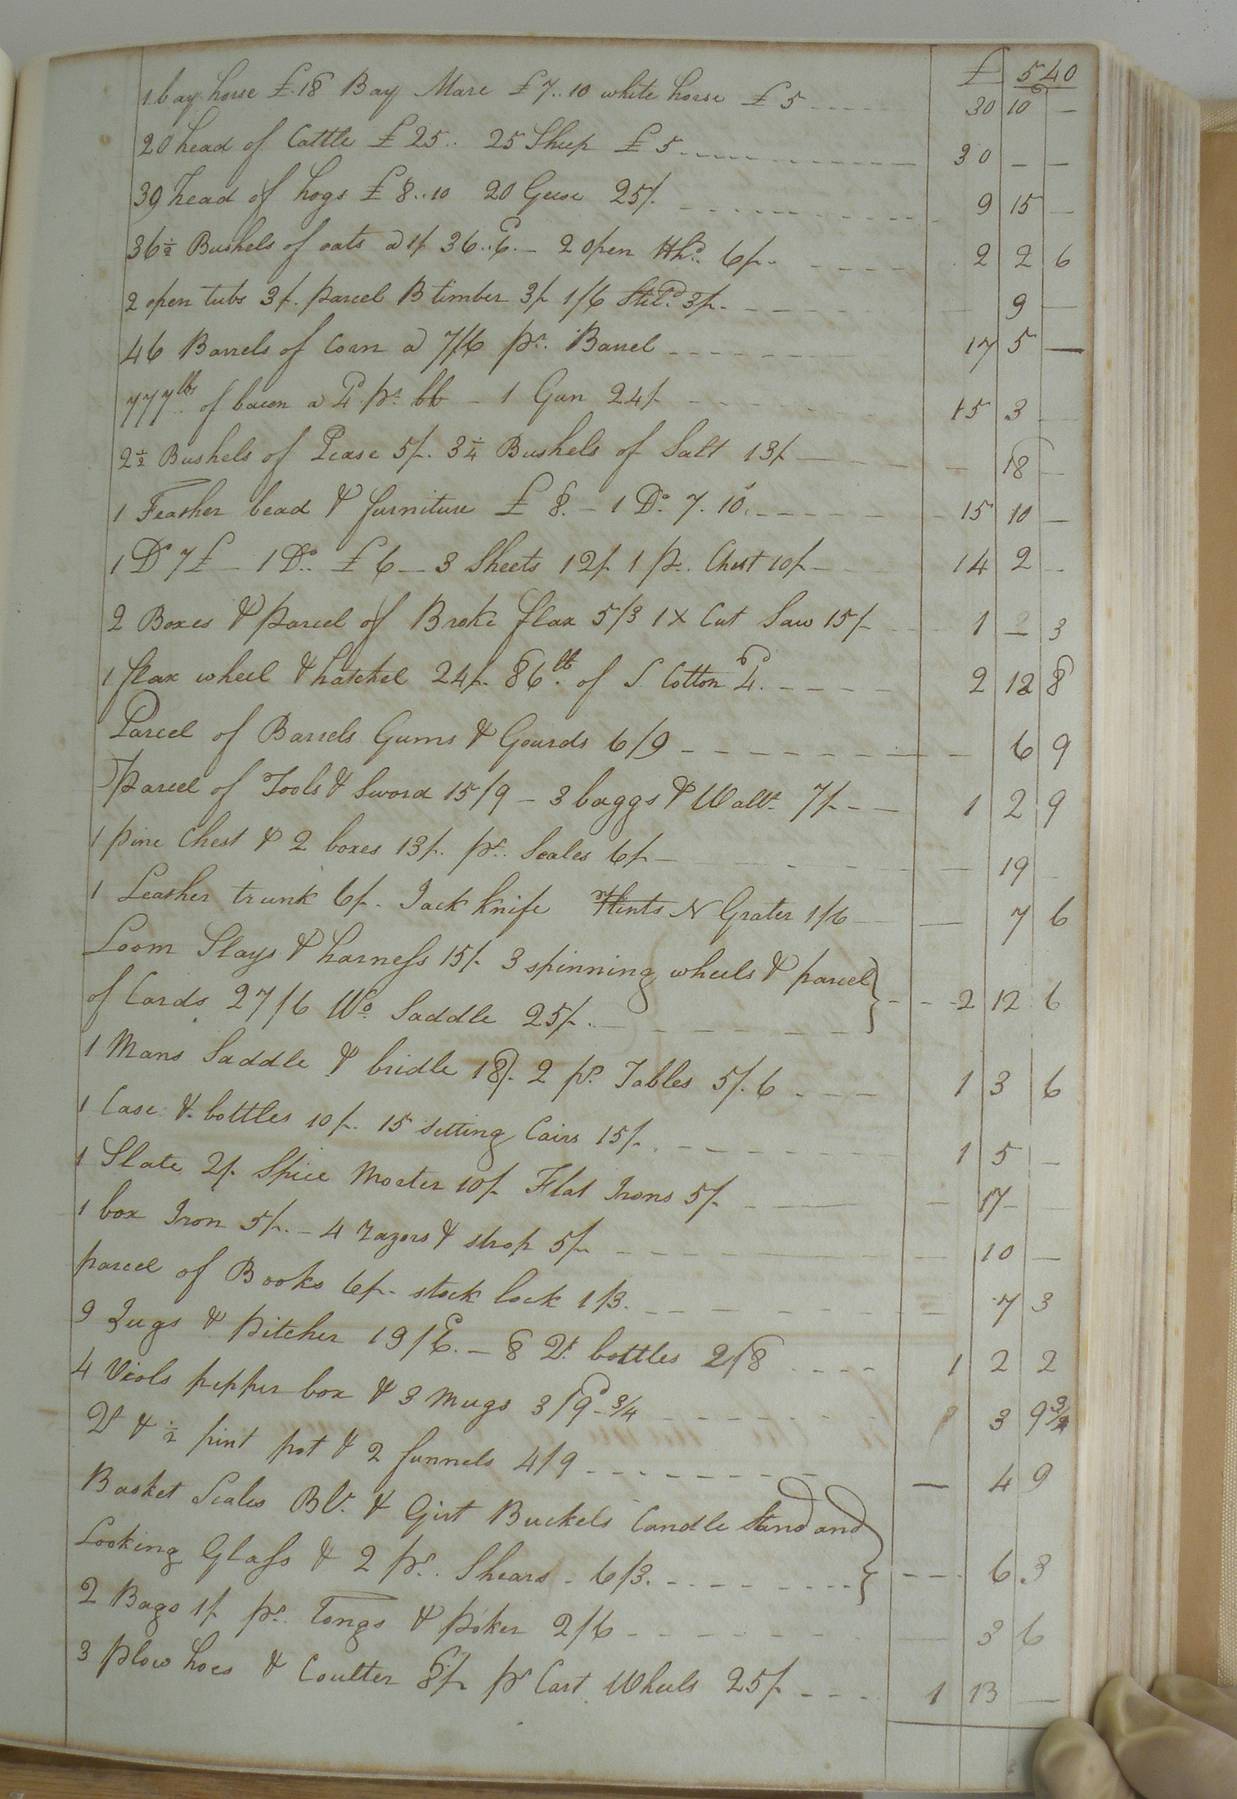 £ 540
1 bay horse £.18 Bay Mare £7..10 white horse £5 30 10 —
20 head of Cattle £25.. 25 Sheep £5 30 — —
39 head of hogs £8..10 20 Geese 25/. 9 15 —
36½ Bushels of oats a 1/. 36..6. — 2 open Hhds. 6/. 2 2 6
2 open tubs 3/. parcel B timber 3/. 1/6 3/. 9 —
46 Barrels of Corn a 7/6 pr. Barrel 17 5 —
777 lbs of bacon a 4d pr. lb — 1 Gun 24/. 15 3
2½ Bushels of Pease 5/. 3¼ Bushels of Salt 13/. — 18 —
1 Feather bead & furniture £8. — 1 Do. 7. 10. 15 10 —
1 Do 7£ — 1 Do. £6 — 3 Sheets 12/. 1 p. Chest 10/. 14 2 —
2 Boxes & parcel of Broke flax 5/3 1 X Cut Saw 15/. 1 — 3
1 flax wheel & hatchel 24/. 86 lb. of S Cotton 4. 2 12 8
Parcel of Barrels Gums & Gourds 6/9 — 6 9
Parcel of Tools & Sword 15/9 — 3 baggs & Wallt. 7/. 1 2 9
1 pine Chest & 2 boxes 13/. pr. Scales 6/. — 19
1 Leather trunk 6/. Jack knife N Grater 1/6 — 7 6
Loom Slays & harness 15/. 3 spinning wheels & parcel
of Cards 27/6 Wo. Saddle 25/. 2 12 6
1 Mans Saddle & bridle 18/. 2 pr. Tables 5/.6 1 3 6
1 Case & bottles 10/. 15 setting Cairs 15/. 1 5 —
1 Slate 2/. Spice Morter 10/. Flat Irons 5/. — 17 —
1 box Iron 5/. — 4 razors & strop 5/. — 10 —
parcel of Books 6/. stock lock 1/3. — 7 3
9 Jugs & Pitcher 19/6. — 8 Qt. bottles 2/8 1 2 2
4 Viols pepper box & 3 Mugs 3/9 ¾ 3 9¾
Qt & ½ pint pot & 2 funnels 4/9 — 4 9
Basket Scales Bl. & Girt Buckels Candle Stand and
Looking Glass & 2 pr. Shears. 6/3. 6 3
2 Bags 1/. pr. Tongs & poker 2/6 — 3 6
3 plow hoes & Coulter 8/. pr Cart Wheels 25/. 1 13 —